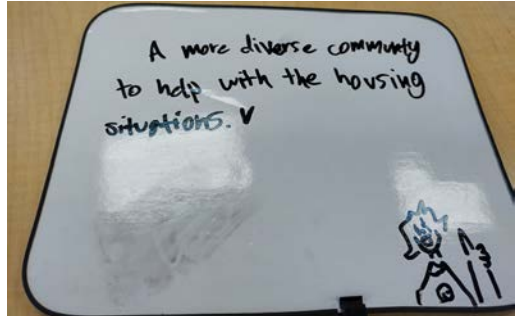 A more diverse communty
to help with the housing
situations. V